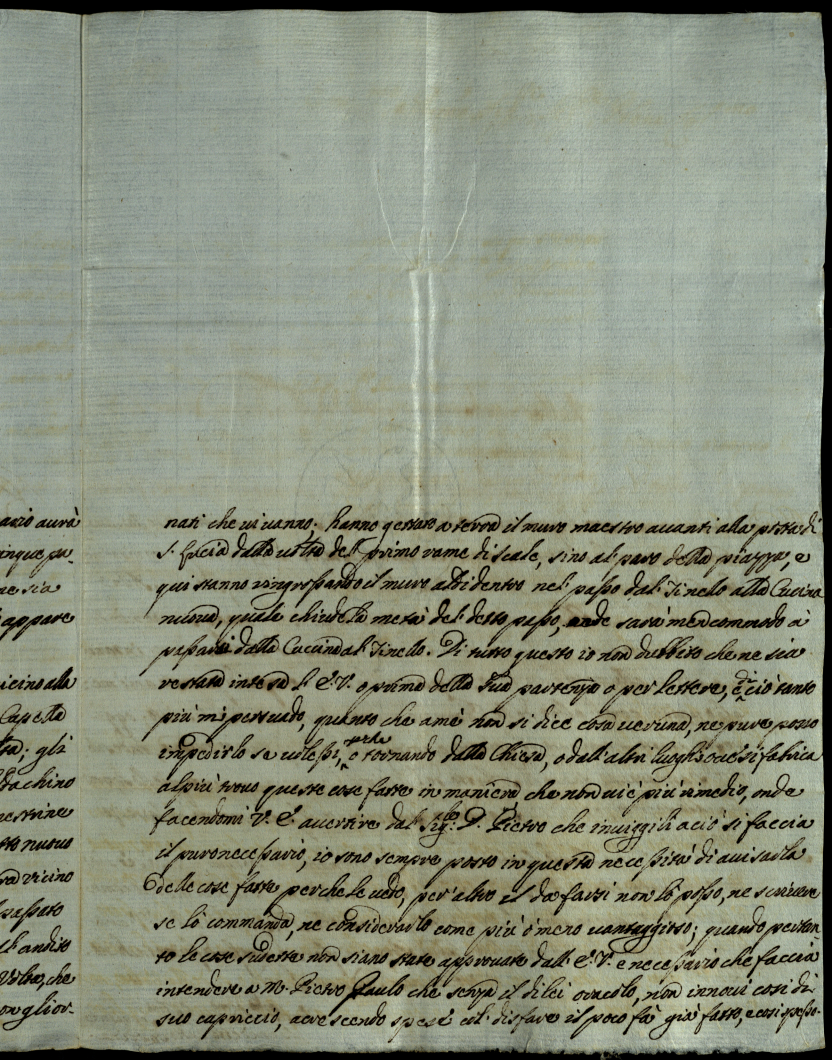 ario aurà
inque pa-
ne sia
appare
icino alla
Capella
gli
dachino
nestrine
tto nuouo
ra vicino
passato
l'andito
Veltre, che
on glior-
nati che ui uanno. hanno gettato a terra il muro maestro auanti alla porta di
S. Lucia dalla uolta del primo rame di scale, sino al paro della piazza, e
qui stanno ringrossando il muro al di dentro nel passo dal Tinello alla Cucina
nuoua, quale chiude la metà del detto passo, onde sarà men commodo à
passarui dalla Cuccina al Tinello. Di tutto questo io non dubbito che ne sia
restata intesa l'E.V. o prima della sua partenza o per lettere, e di ciò tanto
più mi persuado, quanto che a mè non si dice cosa ueruna, ne pure posso
impedirlo se uolessi, perche o tornando dalla Chiesa, o dall'altri luoghi oue si fabrica
al più trouo queste cose fatte in maniera che non ui è più rimedio, onde
facendomi V. E. auertire dal Sig.re D. Pietro che inuiggili acciò si faccia
il puro necessario, io sono sempre posto in questa necessità di auisarla
delle cose fatte perche le uedo, per altro il da farsi non lo posso, ne scriuere
se lo commanda, ne considerarlo come più ò meno uantaggioso; quando pertan-
to le cose sudette non siano state approuate dall'E.V. e necessario che faccia
intendere a M. Pietro Paulo che senza il di lei oracolo, non innoui cosi di
suo capriccio, accrescendo spese col disfare il poco fà già fatto, e cosi spesso